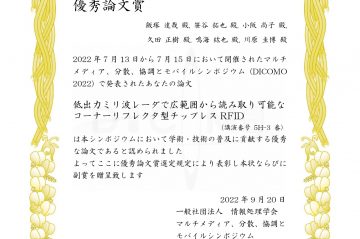 優秀論文賞
飯塚 達哉 殿, 笹谷 拓也 殿, 小阪 尚子 殿,
久田 正樹 殿, 鳴海 紘也 殿, 川原 圭博 殿
2022年7月13から7月15において開催されたマルチ
メディア、分散、協調とモバイルシンポジウム（DICOMO
2022）で発表されたあなたの論文
低出力ミリ波レーダで広範囲から読み取り可能な
コーナーリフレクタ型チップレスRFID
（講演番号 5H-3 番）
は本シンポジウムにおいて学術・技術の普及に貢献する優秀
な論文であると認められました
よってここに優秀論文賞選定規定により表彰し本状ならびに
副賞を贈呈致します
2022年9月20日
一般社団法人 情報処理学会
マルチメディア、分散、協調と
モバイルシンポジウム